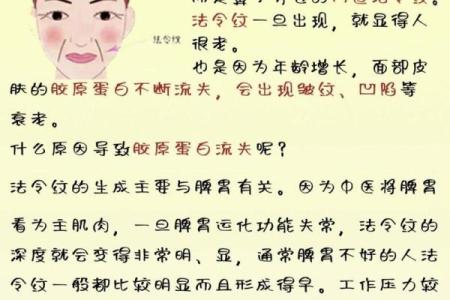 法令纹一旦出现，就显得人
很老。
法令纹
也是因为年龄增长，面部皮
肤的胶原蛋白不断流失，会出现皱纹、凹陷等
衰老。
什么原因导致胶原蛋白流失呢？
法令纹的生成主要与脾胃有关。因为中医将脾胃
看为主肌肉，一旦脾胃运化功能失常，法令纹的
深度就会变得非常明、显，通常脾胃不好的人法
令纹一般都比较明显而且形成得早。工作压力较